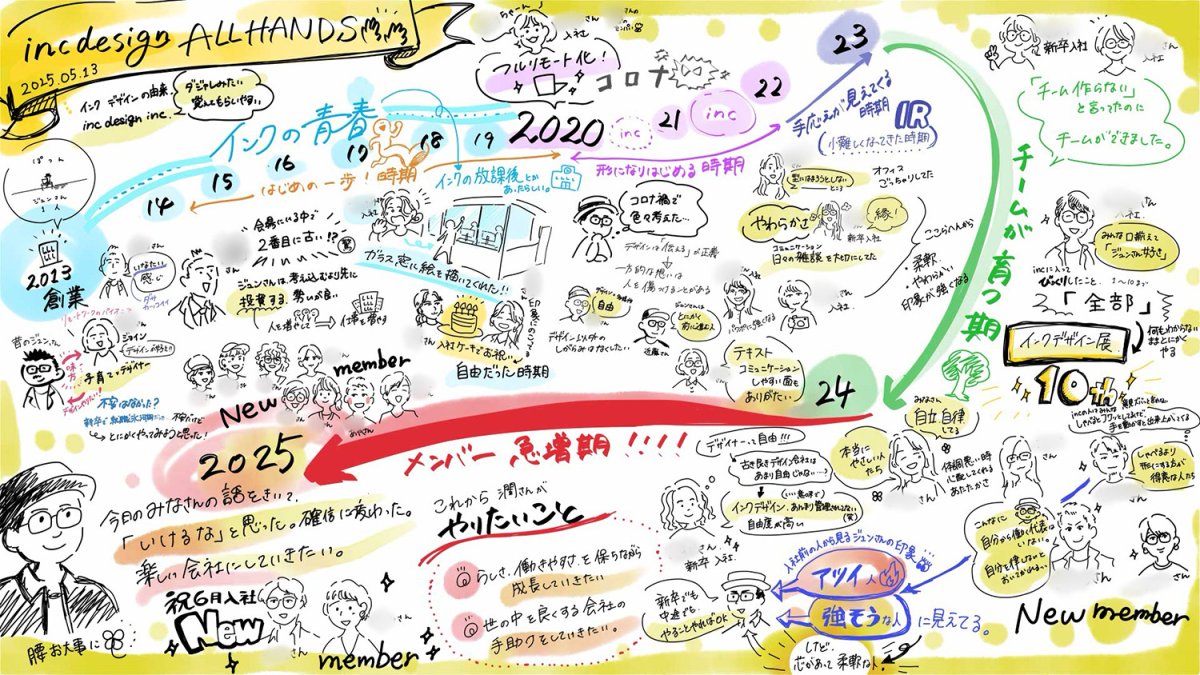 inc design ALLHANDS
2025.05.13
インク デザインの由来
inc design inc.
ダジャレみたい
覚えてもらいやすい
ぽつん
ジュンさん
1人
2013
創業
14
15
16
17
18
19
2020
21
22
23
24
2025
インクの青春
はじめの一歩!時期
インクの放課後とか
あったらしい。
さん
入社
フルリモート化!
コロナ
inc
inc
形になりはじめる時期
手応えが見えてくる
時期
IR
(小難しくなってきた時期)
新卒入社
さん
入社
「チーム作らない」
と言ってたのに
チームができました。
チームが育つ期
いなたい
感じ
会場にいる中で
2番目に古い!?
ジュンさんは、考え込むより先に
投資する、勢いが良い
人を増やして
仕事を増やす
ガラス窓に絵を描いてくれた!!
入社ケーキでお祝い
自由だった時期
コロナ禍で
色々考えた…
デザインは「伝える」が正義
一方的な想いは
人を傷つけることがある
自由
デザイン以外の
しがらみはなくしたい
近藤さん
ジュンさんは
とにかく
前に進む人
オフィス
ごっちゃりしてた
やわらかさ
縁!
新卒入社
コミュニケーション
日々の雑談を大切にしてた
ここら辺から
柔軟
やわらかい
印象が強くなる
テキスト
コミュニケーション
しやすい面も
ありがたい
みんな口揃えて
「ジュンさん好きさ」
incに入って
びっくりしたこと。
1〜10まで
「全部」
何もわからない
ままとにかく
やる
インクデザイン展
10th
昔のジュンさん
味方
ジョイン
子育て×デザイナー
不安はなかった?
とにかくやってみようと思った!
New
member
メンバー急増期!!!!
今日のみなさんの話をきいて、
「いけるな」と思った。確信に変わった。
楽しい会社にしていきたい。
祝6月入社
New
member
腰お大事に
これから 潤さんが
やりたいこと
らしさ、働きやすさを保ちながら
成長していきたい
世の中を良くする会社の
手助けをしていきたい。
デザイナーって自由!!!
古き良きデザイン会社は
あまり自由じゃない…?
(いい意味で)
インクデザイン、あんまり管理されてない
(笑)
自由度が高い
さん
新卒入社
本当に
やさしい人
たち
みなさん
自立、自律
してる
体調悪い時
心配してくれる
あたたかさ
しゃべるより
形にする方が
得意な人たち
こんなに
自分から働く代表は
いない。
自分を律しないと
おいてかれる…
入社前の人から見るジュンさんの印象…
アツイ人
強そうな人
に見えてる。
新卒でも
中途でも
やることやればOK
けど、
芯があって柔軟な人。
New member